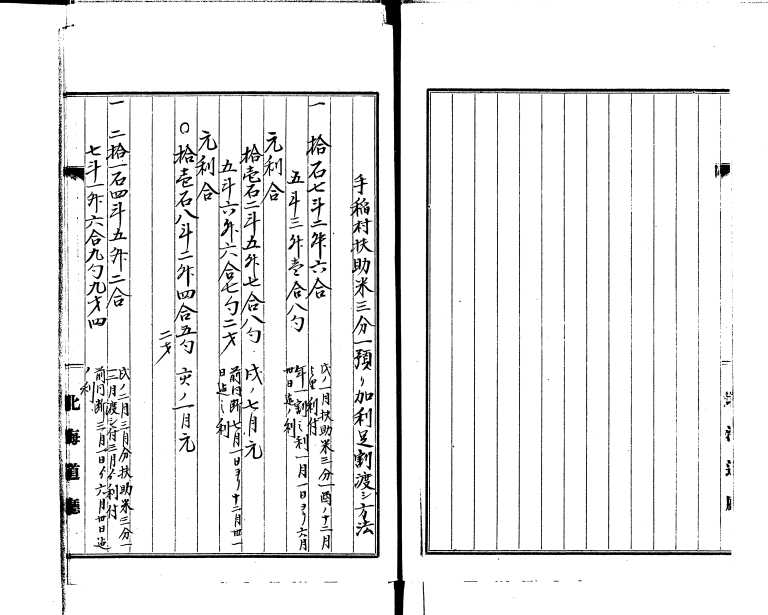 手稲村扶助米三分一預リ加利足割渡シ方法
一 拾石七斗二升六合
戌ノ一月扶助米三分一酉ノ十二月
ヨリ利付
五斗三升壱合八勺
年一割之利一月一日ヨリ六月
卅日迄ノ利
元利合
拾壱石二斗五升七合八勺 戌ノ七月元
五斗六升六合七勺二才
前同断七月一日ヨリ十二月卅一
日迄之利
元利合
〇拾壱石八斗二升四合五勺 亥ノ一月元
二才
一 二拾一石四斗五升二合
戌ノ二月三月分扶助米三分一
二月渡シ付三月ゟ利付
七斗一升六合九勺九才四
前同断三月一日ゟ六月卅日迄
ノ利
北海道廳